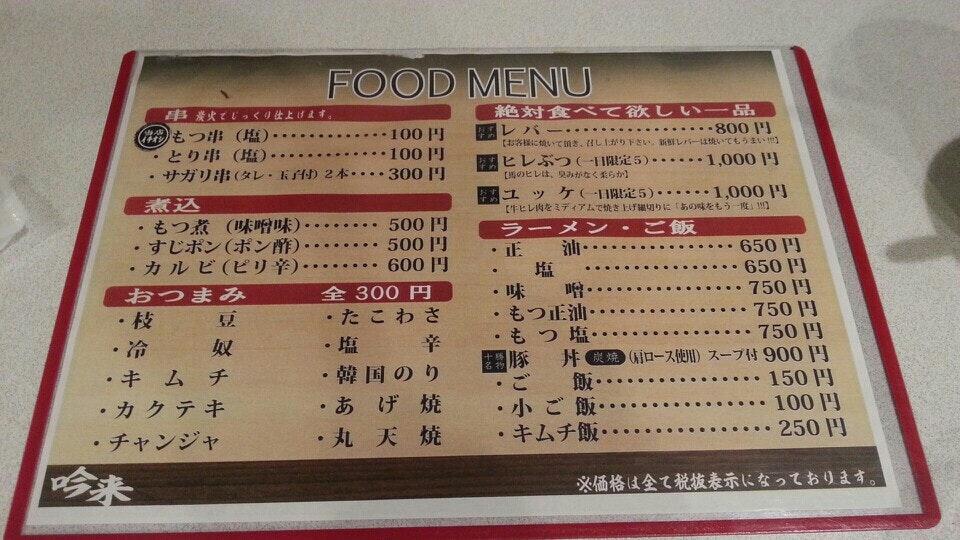 FOOD MENU
串 炭火でじっくり仕上げます。
当店イチオシ もつ串（塩）・・・・・・・・・・・・100円
・とり串（塩）・・・・・・・・・・・・100円
・サガリ串（タレ・玉子付）2本・・・・300円
煮込
・もつ煮（味噌味）・・・・・・・・・500円
・すじポン（ポン酢）・・・・・・・・500円
・カルビ（ピリ辛）・・・・・・・・・600円
おつまみ 全300円
・枝豆 ・たこわさ
・冷奴 ・塩辛
・キムチ ・韓国のり
・カクテキ ・あげ焼
・チャンジャ ・丸天焼
絶対食べて欲しい一品
おすすめ レバー・・・・・・・・・・・・・・800円
【お客様に焼いて頂き、召し上がり下さい。新鮮レバーは焼いてもうまい!!!】
おすすめ ヒレぶつ（一日限定5）・・・・・1,000円
【馬のヒレは、臭みがなく柔らか】
おすすめ ユッケ（一日限定5）・・・・・・1,000円
【牛ヒレ肉をミディアムで焼き上げ細切りに「あの味をもう一度」!!!】
ラーメン・ご飯
・正油・・・・・・・・・・・・・・・650円
・塩・・・・・・・・・・・・・・・650円
・味噌・・・・・・・・・・・・・・・750円
・もつ正油・・・・・・・・・・・・・750円
・もつ塩・・・・・・・・・・・・・・750円
十勝名物 豚丼 炭焼（肩ロース使用）スープ付900円
・ご飯・・・・・・・・・・・・・・・150円
・小ご飯・・・・・・・・・・・・・・100円
・キムチ飯・・・・・・・・・・・・・250円
吟来
※価格は全て税抜表示になっております。